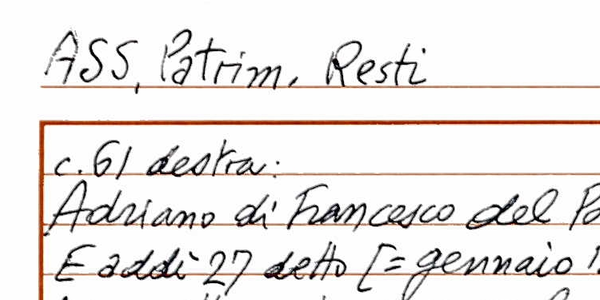 ASS, Patrim. Resti
c. 61 destra:
Adriano di Francesco del
E addì 27 detto [= gennaio